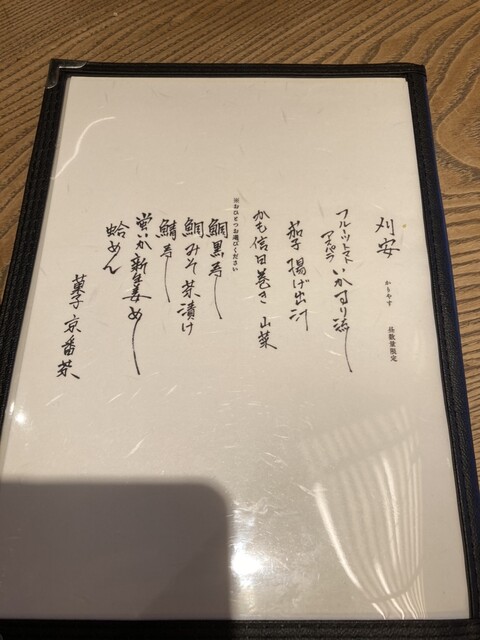 刈安
かりやす
昼数量限定
フルーツトマト
アスパラ
いかすり流し
茄子揚げ出汁
かも信田巻き 山菜
※おひとつお選びください
鯛黒寿し
鯛みそ茶漬け
鯖寿し
蛍いか新生姜めし
蛤めん
菓子 京番茶